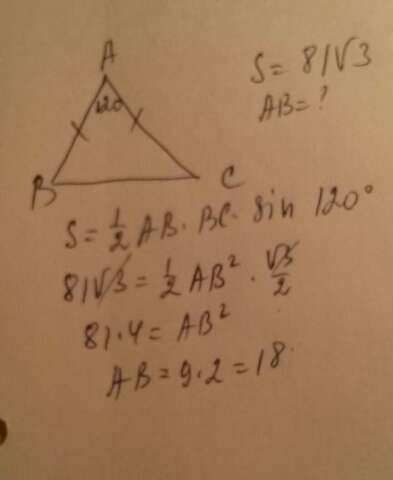 A
120
B
C
S = 81√3
AB = ?
S = 1/2 AB · BC · sin 120°
81√3 = 1/2 AB² · √3/2
81 · 4 = AB²
AB = 9 · 2 = 18.